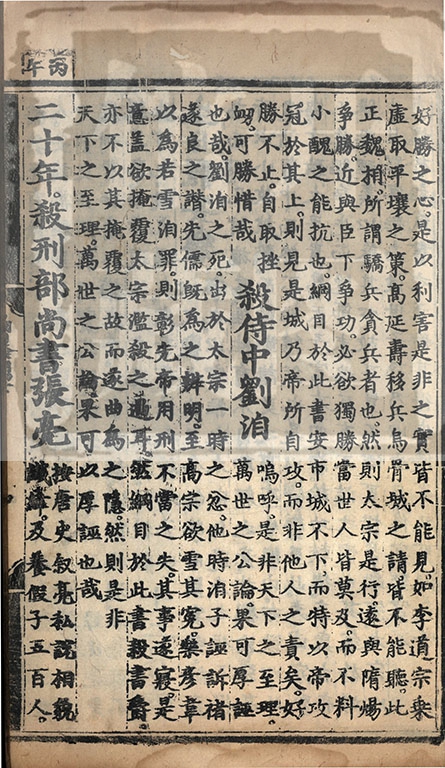 丙午
好勝之心是以利害是非之實皆不能見如李道宗乘
虛取平壤之策高延壽移兵烏骨城之請皆不能聽此
正魏相所謂驕兵貪兵者也然則太宗是行遠與隋煬
爭勝近與臣下爭功必欲獨勝當世人皆莫及而不料
小醜之能抗也綱目於此書安市城不下而特以帝攻
冠於其上則見是城乃帝所自攻而非他人之責矣好
勝不止自取挫
衂可勝惜哉
殺侍中劉洎
嗚呼是非天下之至理
萬世之公論果可厚誣
也哉劉洎之死出於太宗一時之忿他時洎子誣訴褚
遂良之譖先儒既為之辨明至高宗欲雪其冤樂彥瑋
以為若雪洎罪則彰先帝用刑不當之失其事遂寢是
意蓋欲掩覆太宗濫殺之過耳然綱目於此書殺書爵
亦不以其掩覆之故而遂曲為之隱然則是非
天下之至理萬世之公論果可以厚誣也哉
二十年殺刑部尚書張亮
按唐史叙亮私謁相貌
讖緯及養假子五百人